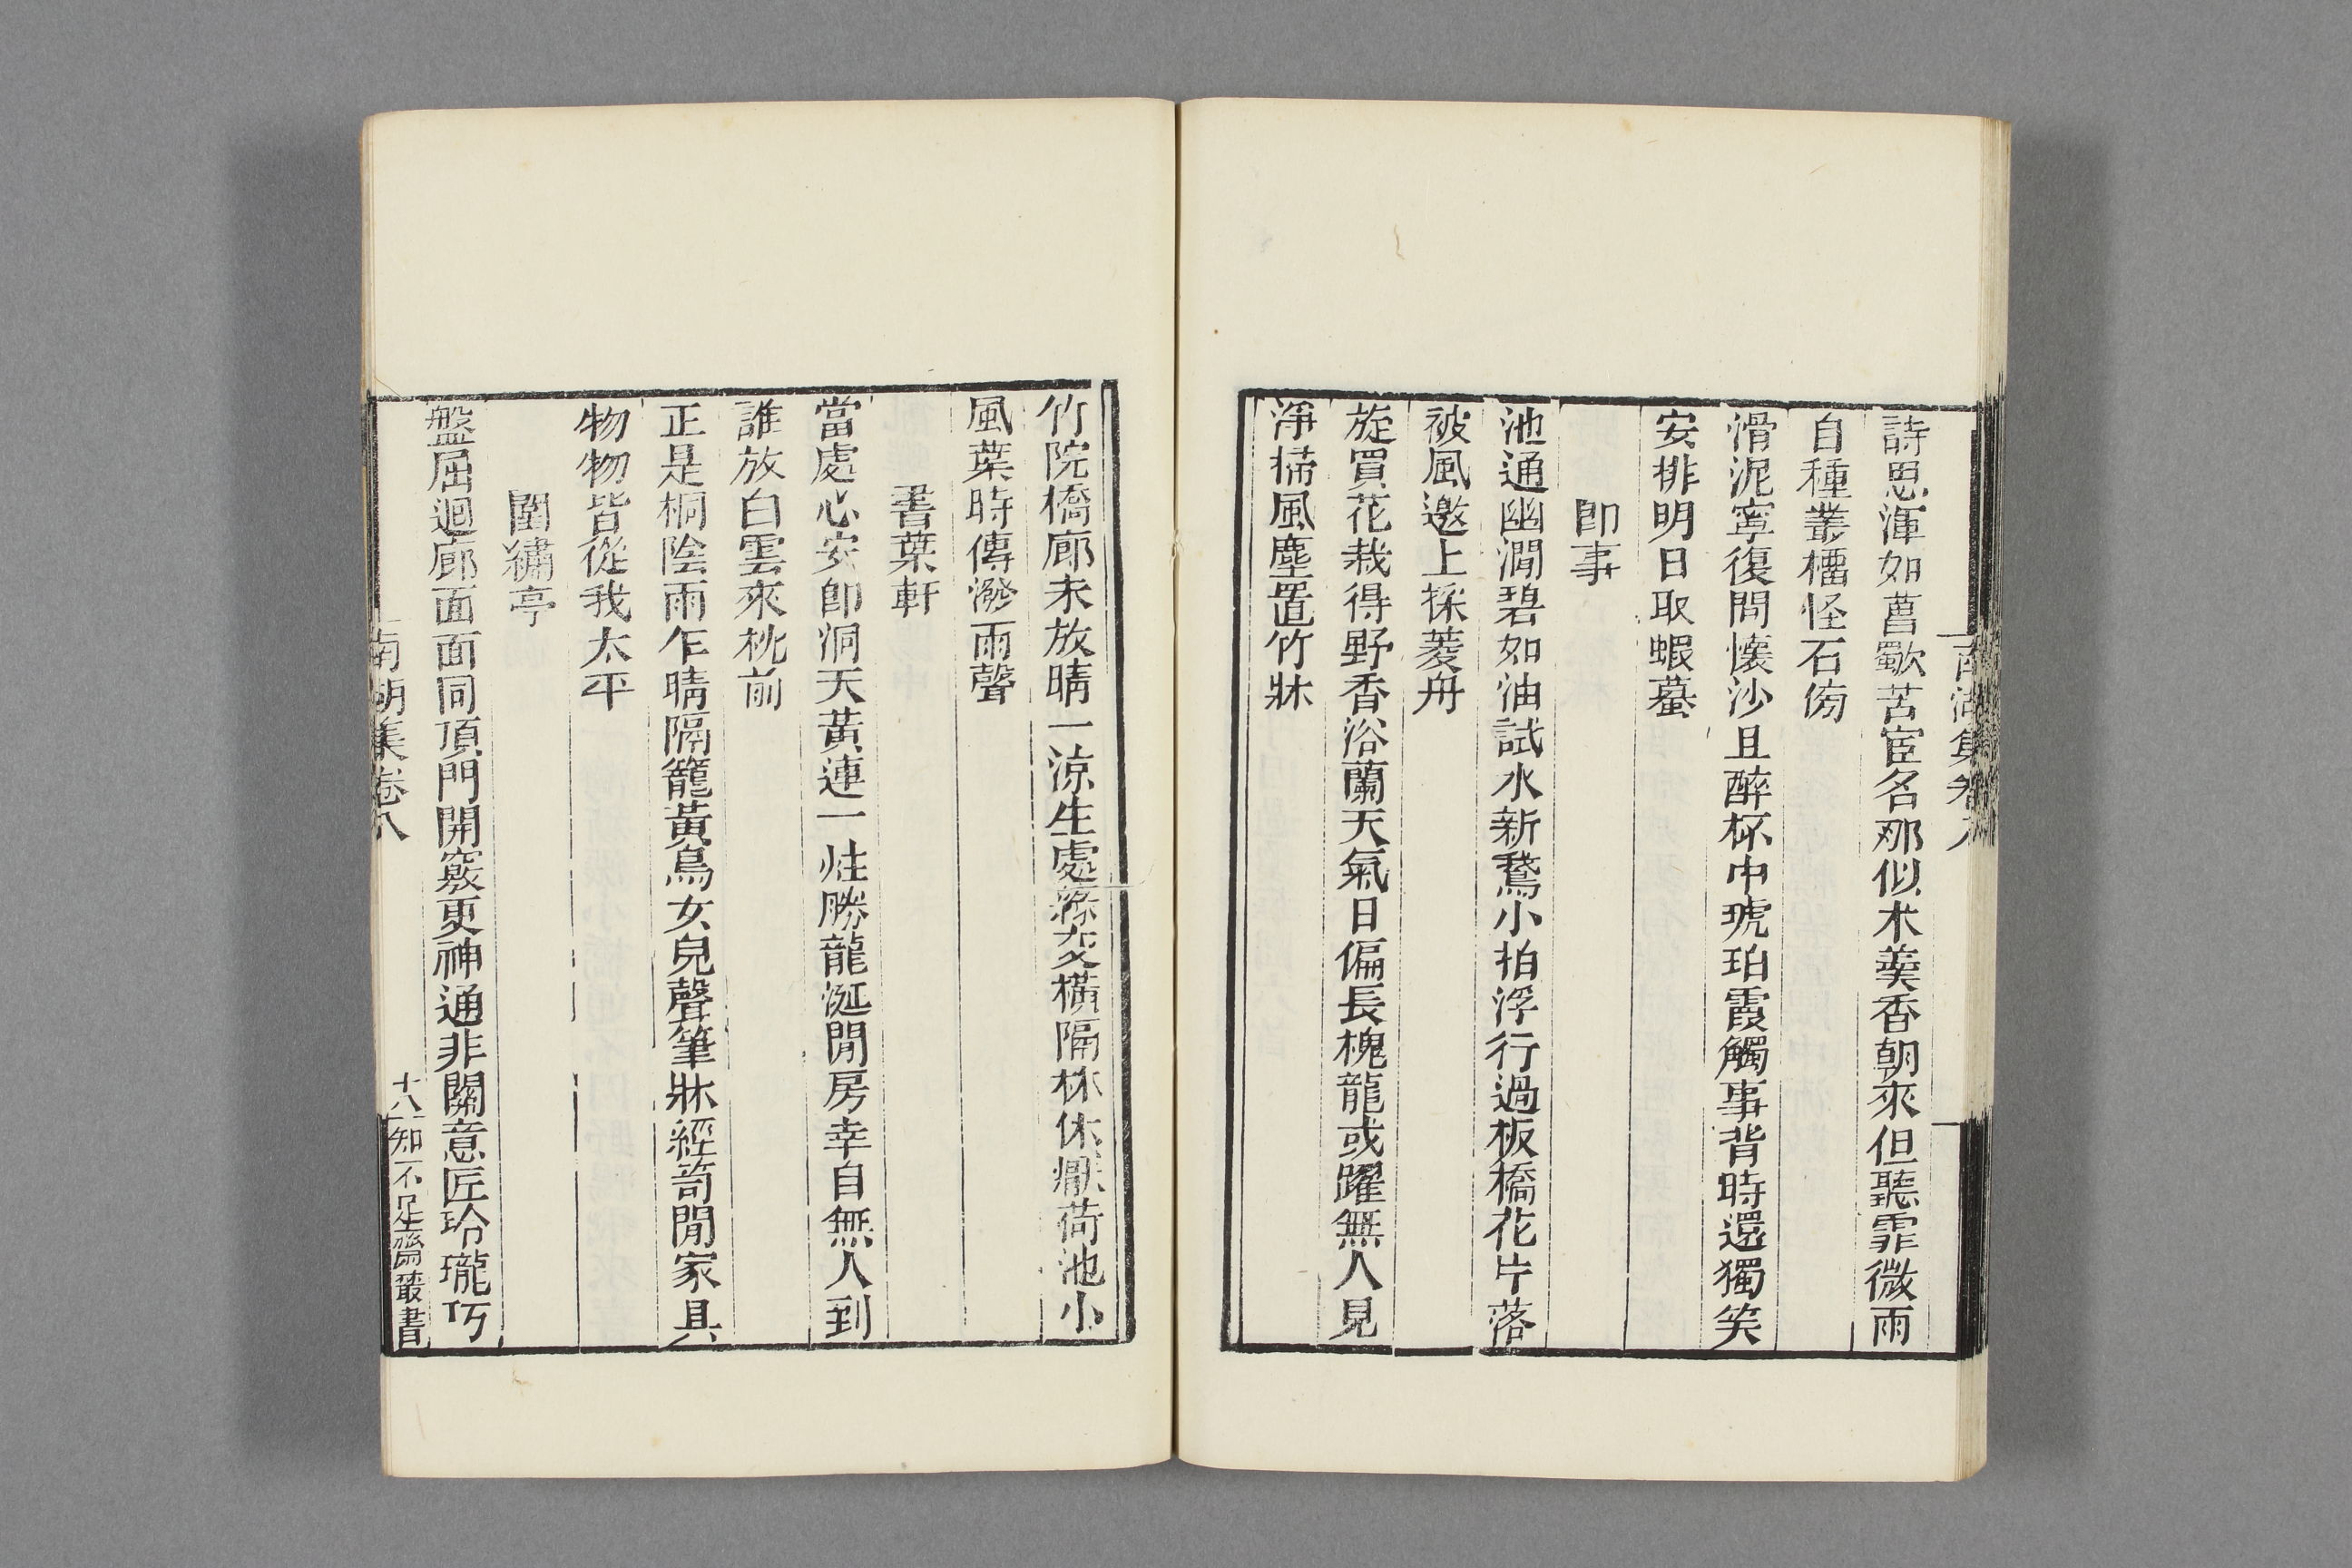 南湖集卷八
詩思渾如舊歠苦宦名那似朮羹香朝來但聽霏微雨
自種叢橊怪石傍
滑泥寧復問懷沙且醉杯中琥珀霞觸事背時還獨笑
安排明日取蝦蟇
卽事
池通幽澗碧如油試水新鵞小拍浮行過板橋花片落
被風邀上採菱舟
旋買花栽得野香浴蘭天氣日偏長槐龍或躍無人見
淨掃風塵置竹牀
竹院橋廊未放晴一涼生處綠交橫隔林休厭荷池小
風葉時傳潑雨聲
書葉軒
當處心安卽洞天黃連一性勝龍涎閒房幸自無人到
誰放白雲來枕前
正是桐陰雨乍晴隔籠黃鳥女兒聲筆牀經笥閒家具
物物皆從我太平
圍繡亭
盤屈迴廊面面同頂門開竅更神通非關意匠玲瓏巧
南湖集卷八
十八
知不足齋叢書